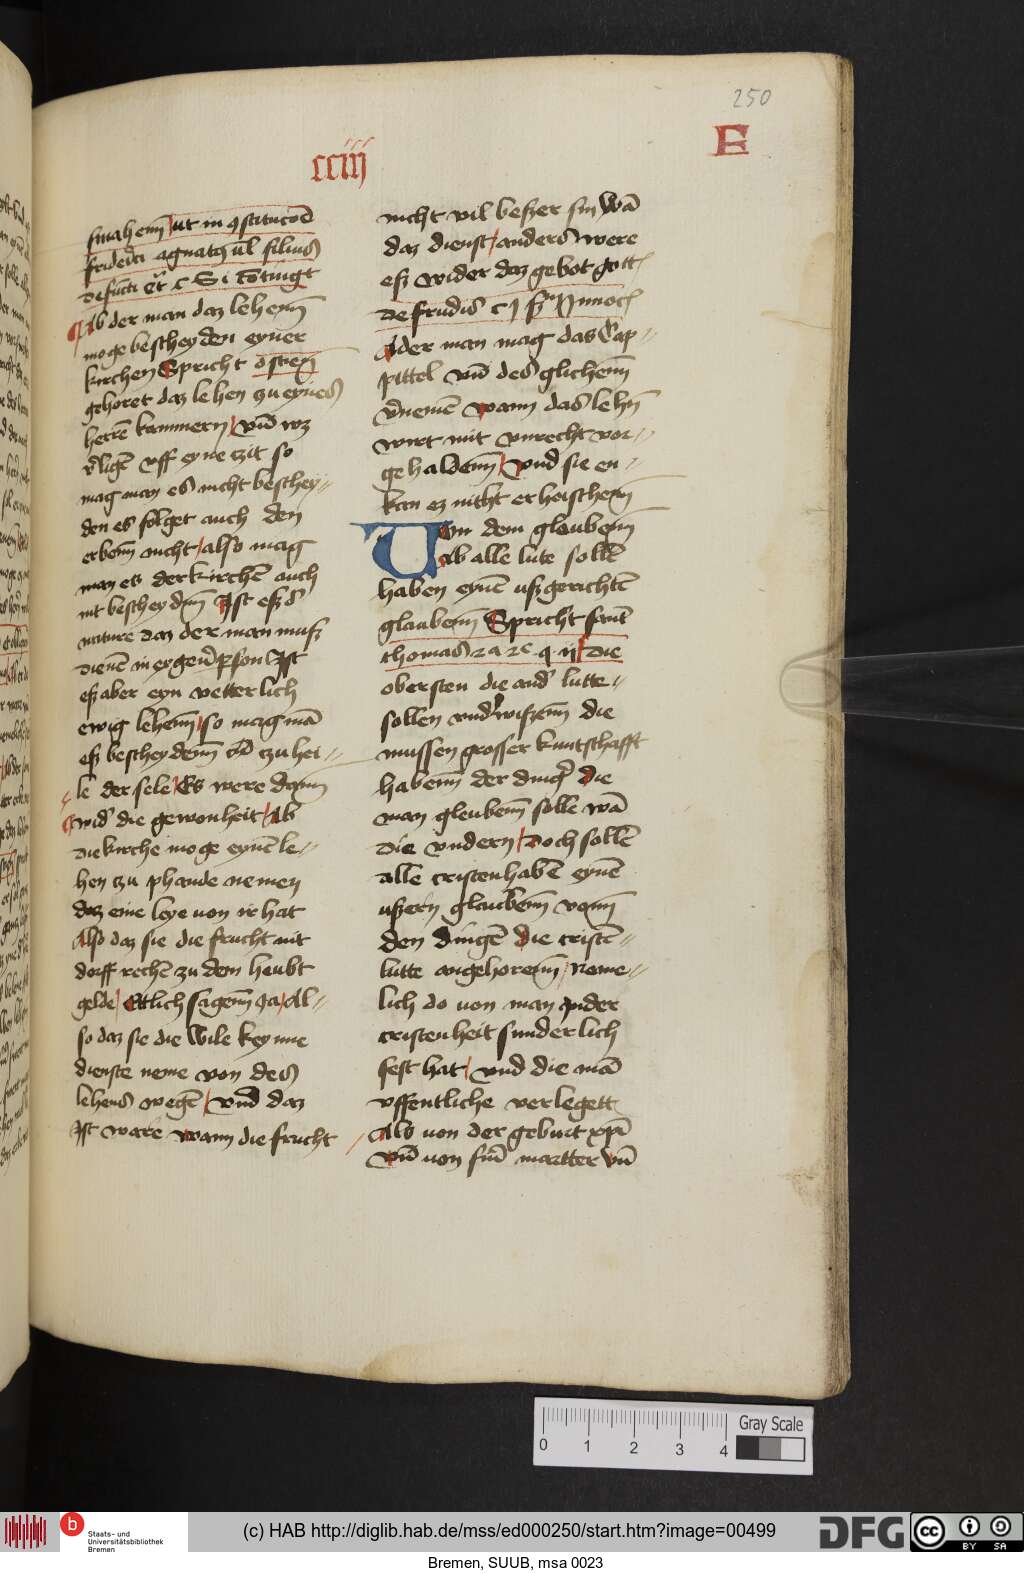 250
E
cciij
smahem ut in ꝯstitucōe
friderici agnatꝫ ul filius
defūcti et c Si cōtingt
Ab der man daz lehenn
moge bescheyden eyner
kirchen Spricht osten
gehoret daz lehen zu eynes
herrē kammern / vnd wz
uff eyne czit so
mag man es nicht beschey
den es folget auch den
erbenn nicht / also mag
man es der kirchē auch
nit bescheydenn Ist eß d
nature daz der man muß
dienē in eygener pson Ist
eß aber eyn vetterlich
ewig lehenn / so mag mā
eß bescheydenn czu hei
le der sele / Es were dann
wider die gewonheit / Ab
die kirche moge eynē le
hen czu phande nemen
daz eine leye von ir hat
Also daz sie die frucht nit
dorff rechē zu dem heubt
gelde / Ettlich sagenn Ja / Al
so daz sie die wile keyne
dienste neme von des
lehens wegē / vnd daz
Ist ware wann die frucht
nicht vil beßer sin wā
daz dienst / anders were
eß wider daz gebot gott
de feudis c j
Ader man mag das Cap
pittel vn̄ des glichenn
v'nemē wann das lehn
wirt mit vnrecht vor
gehaldenn / vnd sie en
kan ez nicht erheischenn
Von dem glaubenn
Ab alle lute sollē
haben eynē ußgerichtē
glaubenn Spricht sant
thomas 2a 2e q ij / die
obersten die and' lutte
sollen vnderwißenn die
mussen grosser kuntschafft
habenn der dinge die
man gleubenn solle wā
die vndern / doch sollē
alle cristen habē eynē
ußern glaubenn vonn
den dingē die cristē
lutte angehorenn / Neme
lich do von man in der
cristenheit sunderlich
fest hat / vnd die mā
vffentliche verlegett
Als von der geburt xpi
vn̄ von siner martter vn̄
0 1 2 3 4
Gray Scale
B
Staats- und
Universitätsbibliothek
Bremen
(c) HAB http://diglib.hab.de/mss/ed000250/start.htm?image=00499
DFG
cc BY SA
Bremen, SUUB, msa 0023